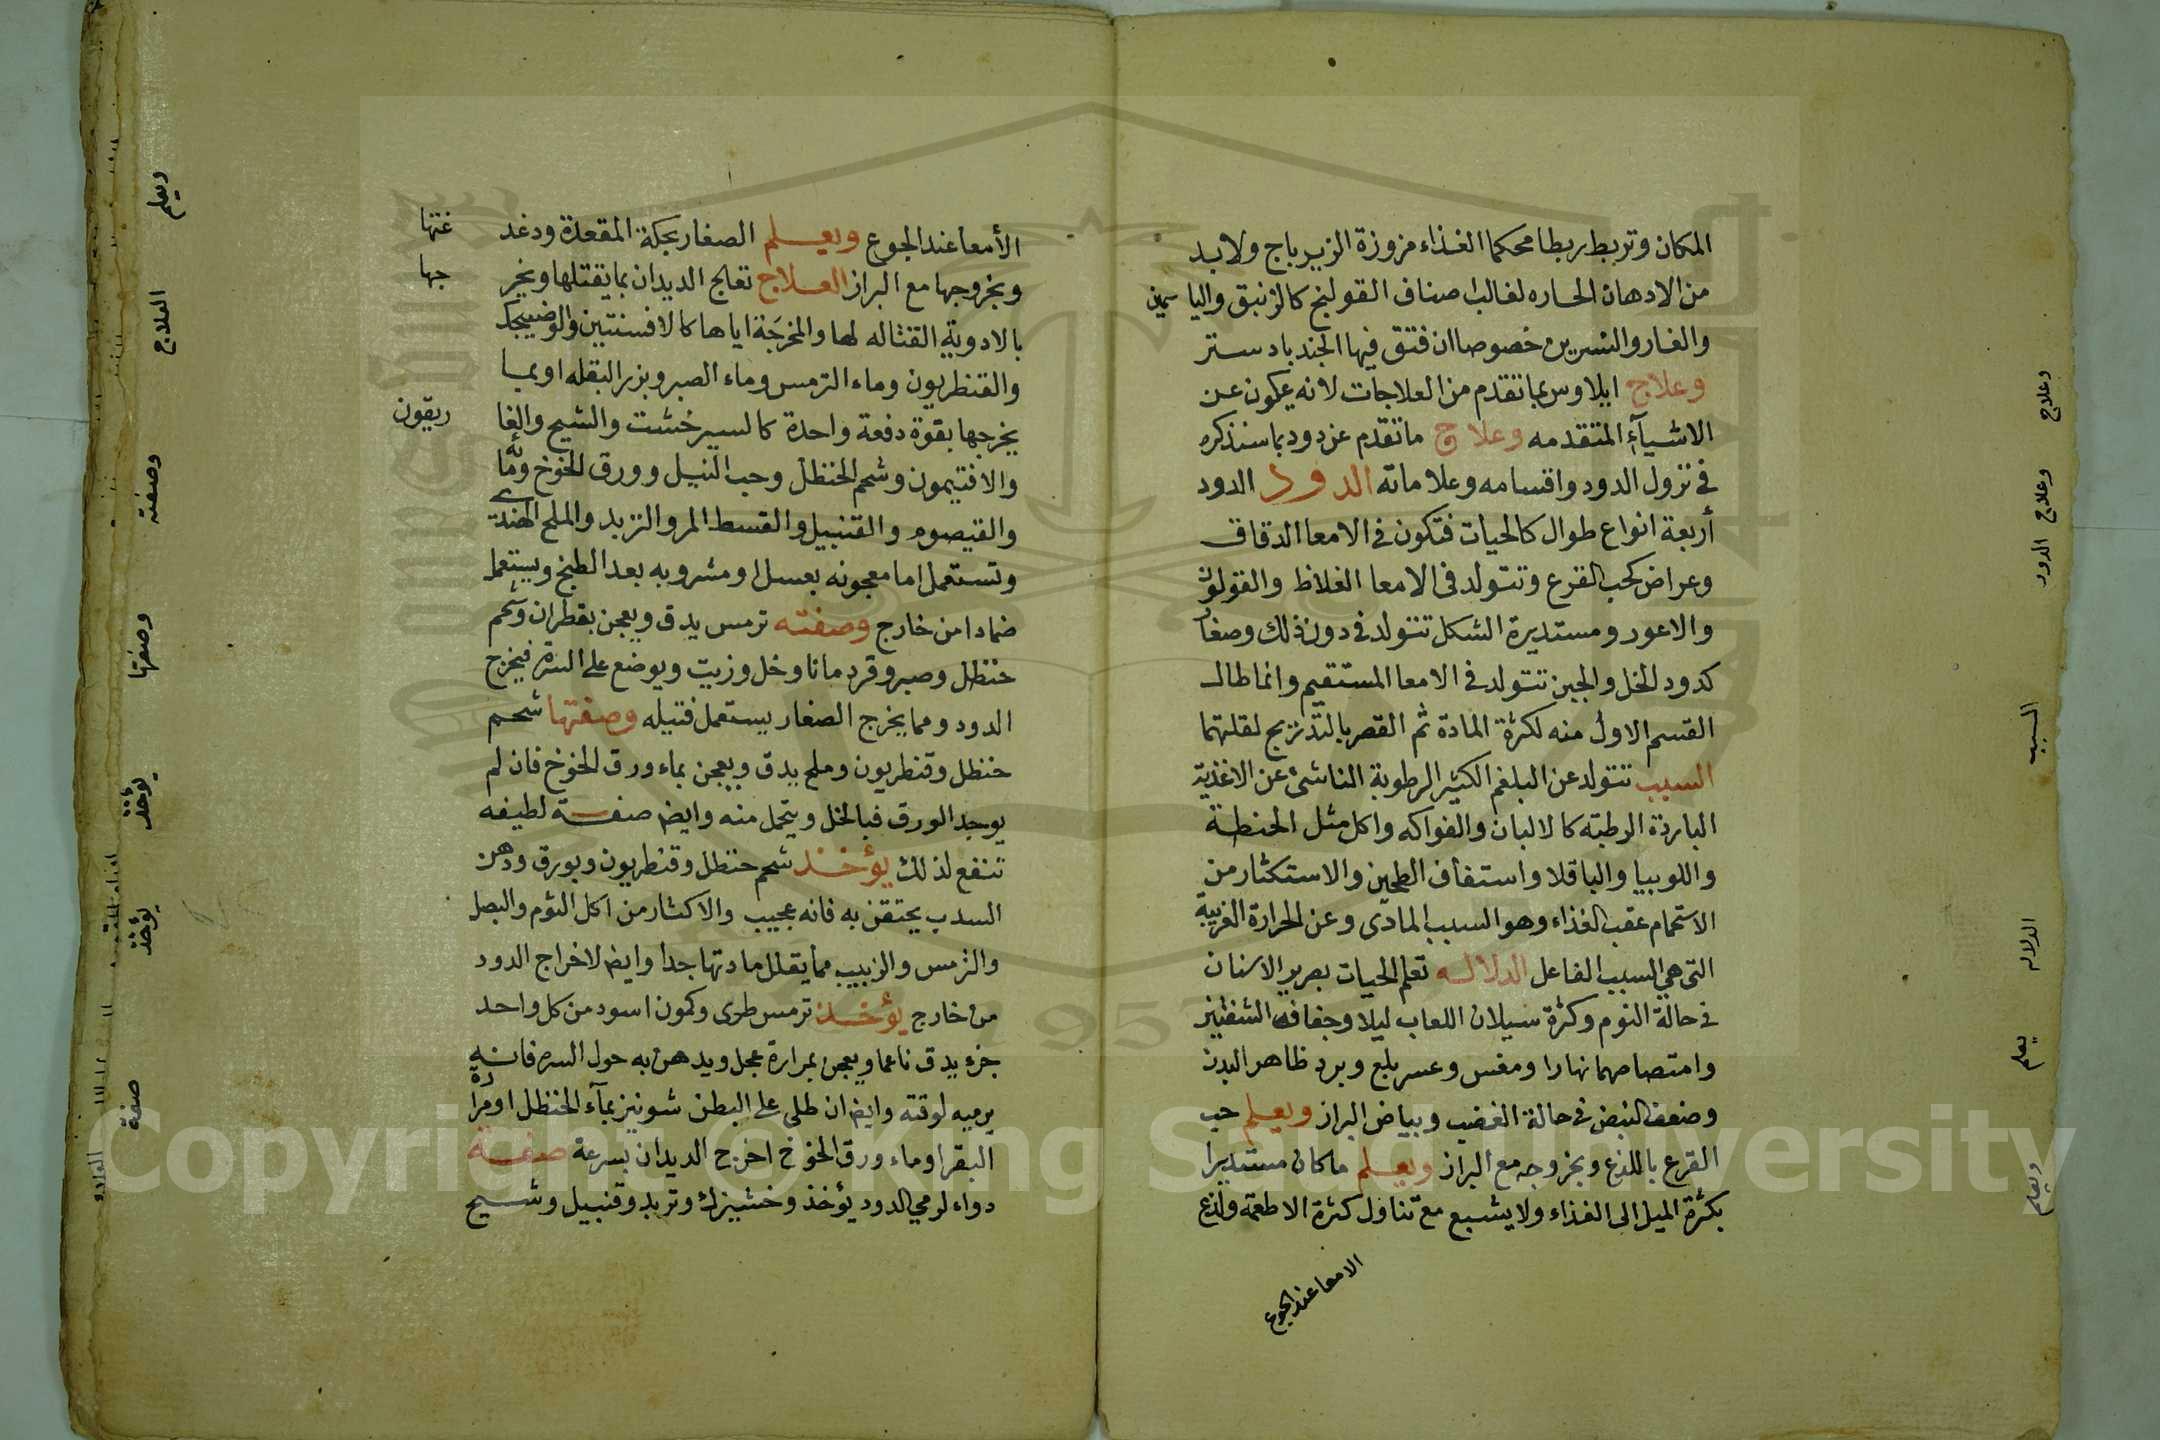 المكان وتربط ربطا محكما الغذاء مزوزة الزيرباج ولابد
من الادهان الحاره لغالب اصناف القولنج كالزنبق واليا سمين
والغار والنسرين خصوصا ان فتق فيها الجندبادستر
وعلاج ايلاوس بما تقدم من العلاجات لانه يكون عن
الاشيآء المتقدمه وعلاج ما تقدم عن دود بما سنذكره
في نزول الدود واقسامه وعلاماته الدود الدود
أربعة انواع طوال كالحيات فتكون في الامعا الدقاق
وعراض كحب القرع وتتولد في الامعا الغلاظ والقولون
والاعور ومستديرة الشكل تتولد في دون ذلك وصغار
كدود الخل والجبن تتولد في الامعا المستقيم وانما طال
القسم الاول منه لكثرة المادة ثم القصر بالتدريج لقلتها
السبب تتولد عن البلغم الكثير الرطوبة الناشئ عن الاغذية
الباردة الرطبه كالالبان والفواكه واكل مثل الحنطة
واللوبيا والباقلا واستفاف الطحين والاستكثار من
الاستحمام عقب الغذاء وهو السبب المادى وعن الحرارة الغريبة
التي هي السبب الفاعل الدلاله تعلم الحيات بصرير الاسنان
في حالة النوم وكثرة سيلان اللعاب ليلا وجفافه الشفتين
وامتصاصهما نهارا ومغس وعسر بلع وبرد ظاهر البدن
وضعف النبض في حالة الغضب وبياض البراز ويعلم حب
القرع باللذع وبخروجه مع البراز ويعلم ما كان مستديرا
بكثرة الميل الى الغذاء ولا يشبع مع تناول كثرة الاطعمة ولذع
الامعا عند الجوع
وعلاج
وعلاج الدود
السبب
الدلاله
يعلم
ويعلم
الأمعا عند الجوع ويعلم الصغار بحكة المقعدة ودغد غتها
وبخروجها مع البراز العلاج تعالج الديدان بما يقتلها ويخر جها
بالادوية القتاله لها والمخرجة اياها كالافسنتين
والقنطريون وماء الترمس وماء الصبر وبزر البقله او بما
يخرجها بقوة دفعة واحدة كالسيرخشت والشيح والغا ريقون
والافتيمون وشحم الحنظل وحب النيل وورق الخوخ ومائه
والقيصوم والقنبيل والقسط المر والتربد والملح الهندي
وتستعمل اما معجونه بعسل او مشروبه بعد الطبخ ويستعمل
ضمادا من خارج وصفته ترمس يدق ويعجن بقطران وشحم
حنظل وصبر وقردمانا وخل وزيت ويوضع على السرة فيخرج
الدود ومما يخرج الصغار يستعمل فتيله وصفتها شحم
حنظل وقنطريون وملح يدق ويعجن بماء ورق الخوخ فان لم
يوجد الورق فبالخل ويتحمل منه وايض صفة لطيفه
تنفع لذلك يؤخذ شحم حنظل وقنطريون وبورق ودهن
السدب يحتقن به فانه عجيب والاكثار من اكل الثوم والبصل
والترمس والزبيب مما يقلل مادتها جدا وايض لاخراج الدود
من خارج يؤخذ ترمس طرى وكمون اسود من كل واحد
جزء يدق ناعما ويعجن بمرارة عجل ويدهن به حول السره فانه
يرميه لوقته وايض ان طلى على البطن شونيز بمآء الحنظل او مرارة
البقر او ماء ورق الخوخ اخرج الديدان بسرعة صفة
دواء لرمي الدود يؤخذ وخشيزك وتربد وقنبيل وشيح
ويعلم
العلاج
وصفته
وصفتها
يؤخذ
يؤخذ
صفة
Copyright © King Saud University